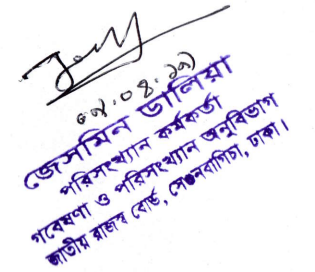 ০৯.০৪.১৭
জেসমিন ডালিয়া
পরিসংখ্যান কর্মকর্তা
গবেষণা ও পরিসংখ্যান অনুবিভাগ
জাতীয় রাজস্ব বোর্ড, সেগুনবাগিচা, ঢাকা।